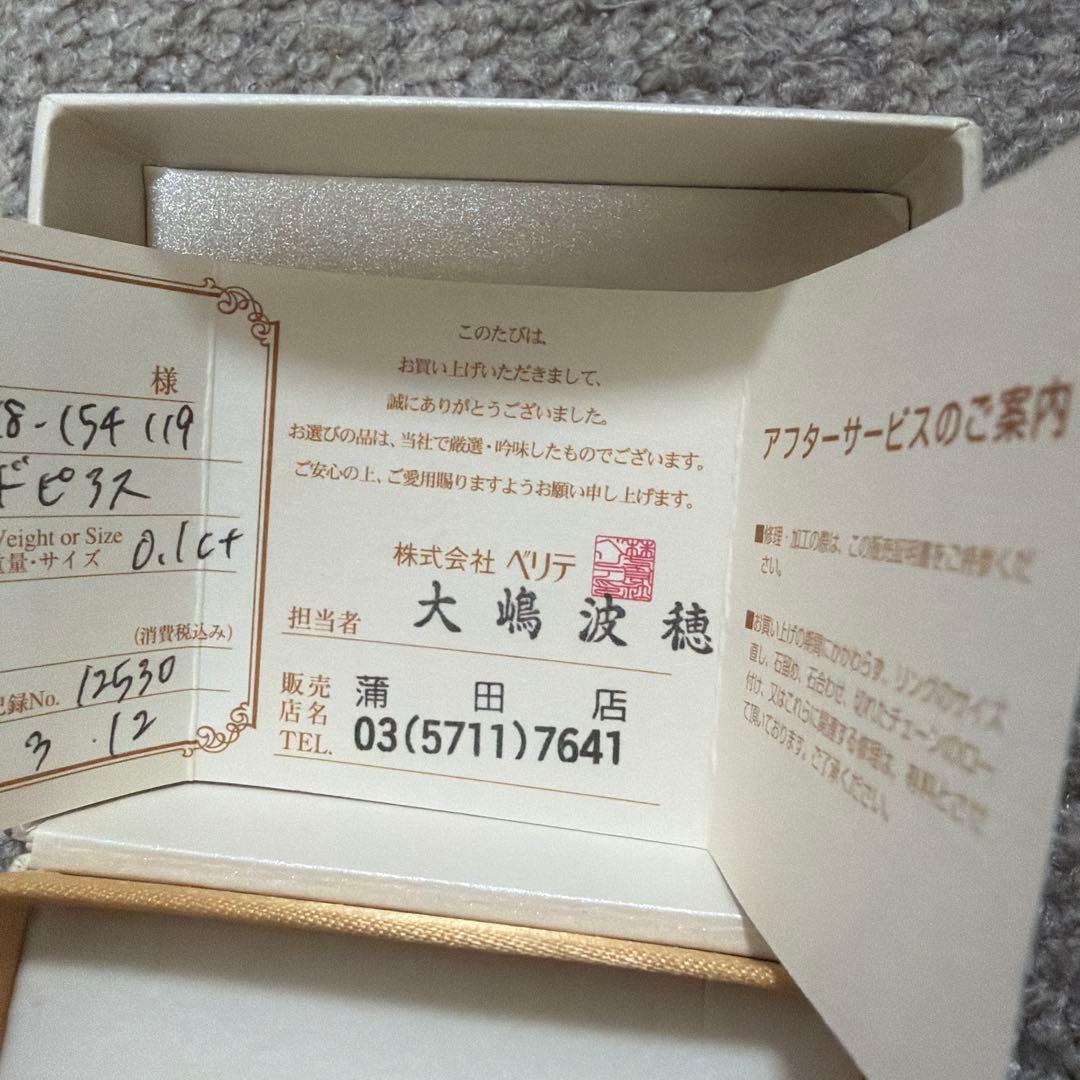 様
8-154 119
ドピアス
Weight or Size
重量・サイズ 0.1ct
(消費税込み)
記録No. 12530
3.12
このたびは、
お買い上げいただきまして、
誠にありがとうございました。
お選びの品は、当社で厳選・吟味したものでございます。
ご安心の上、ご愛用賜りますようお願い申し上げます。
株式会社 ベリテ
担当者 大嶋波穂
販売店名 蒲田店
TEL. 03(5711)7641
アフターサービスのご案内
■修理・加工の際は、この販売証明書をご持参くだ
さい。
■お買い上げの期間にかかわらず、リングのサイズ
直し、石留め、石合わせ、切れたチェーンのロー
付け、又はこれらに関連する修理は、有料とさせ
て頂いております。ご了承ください。